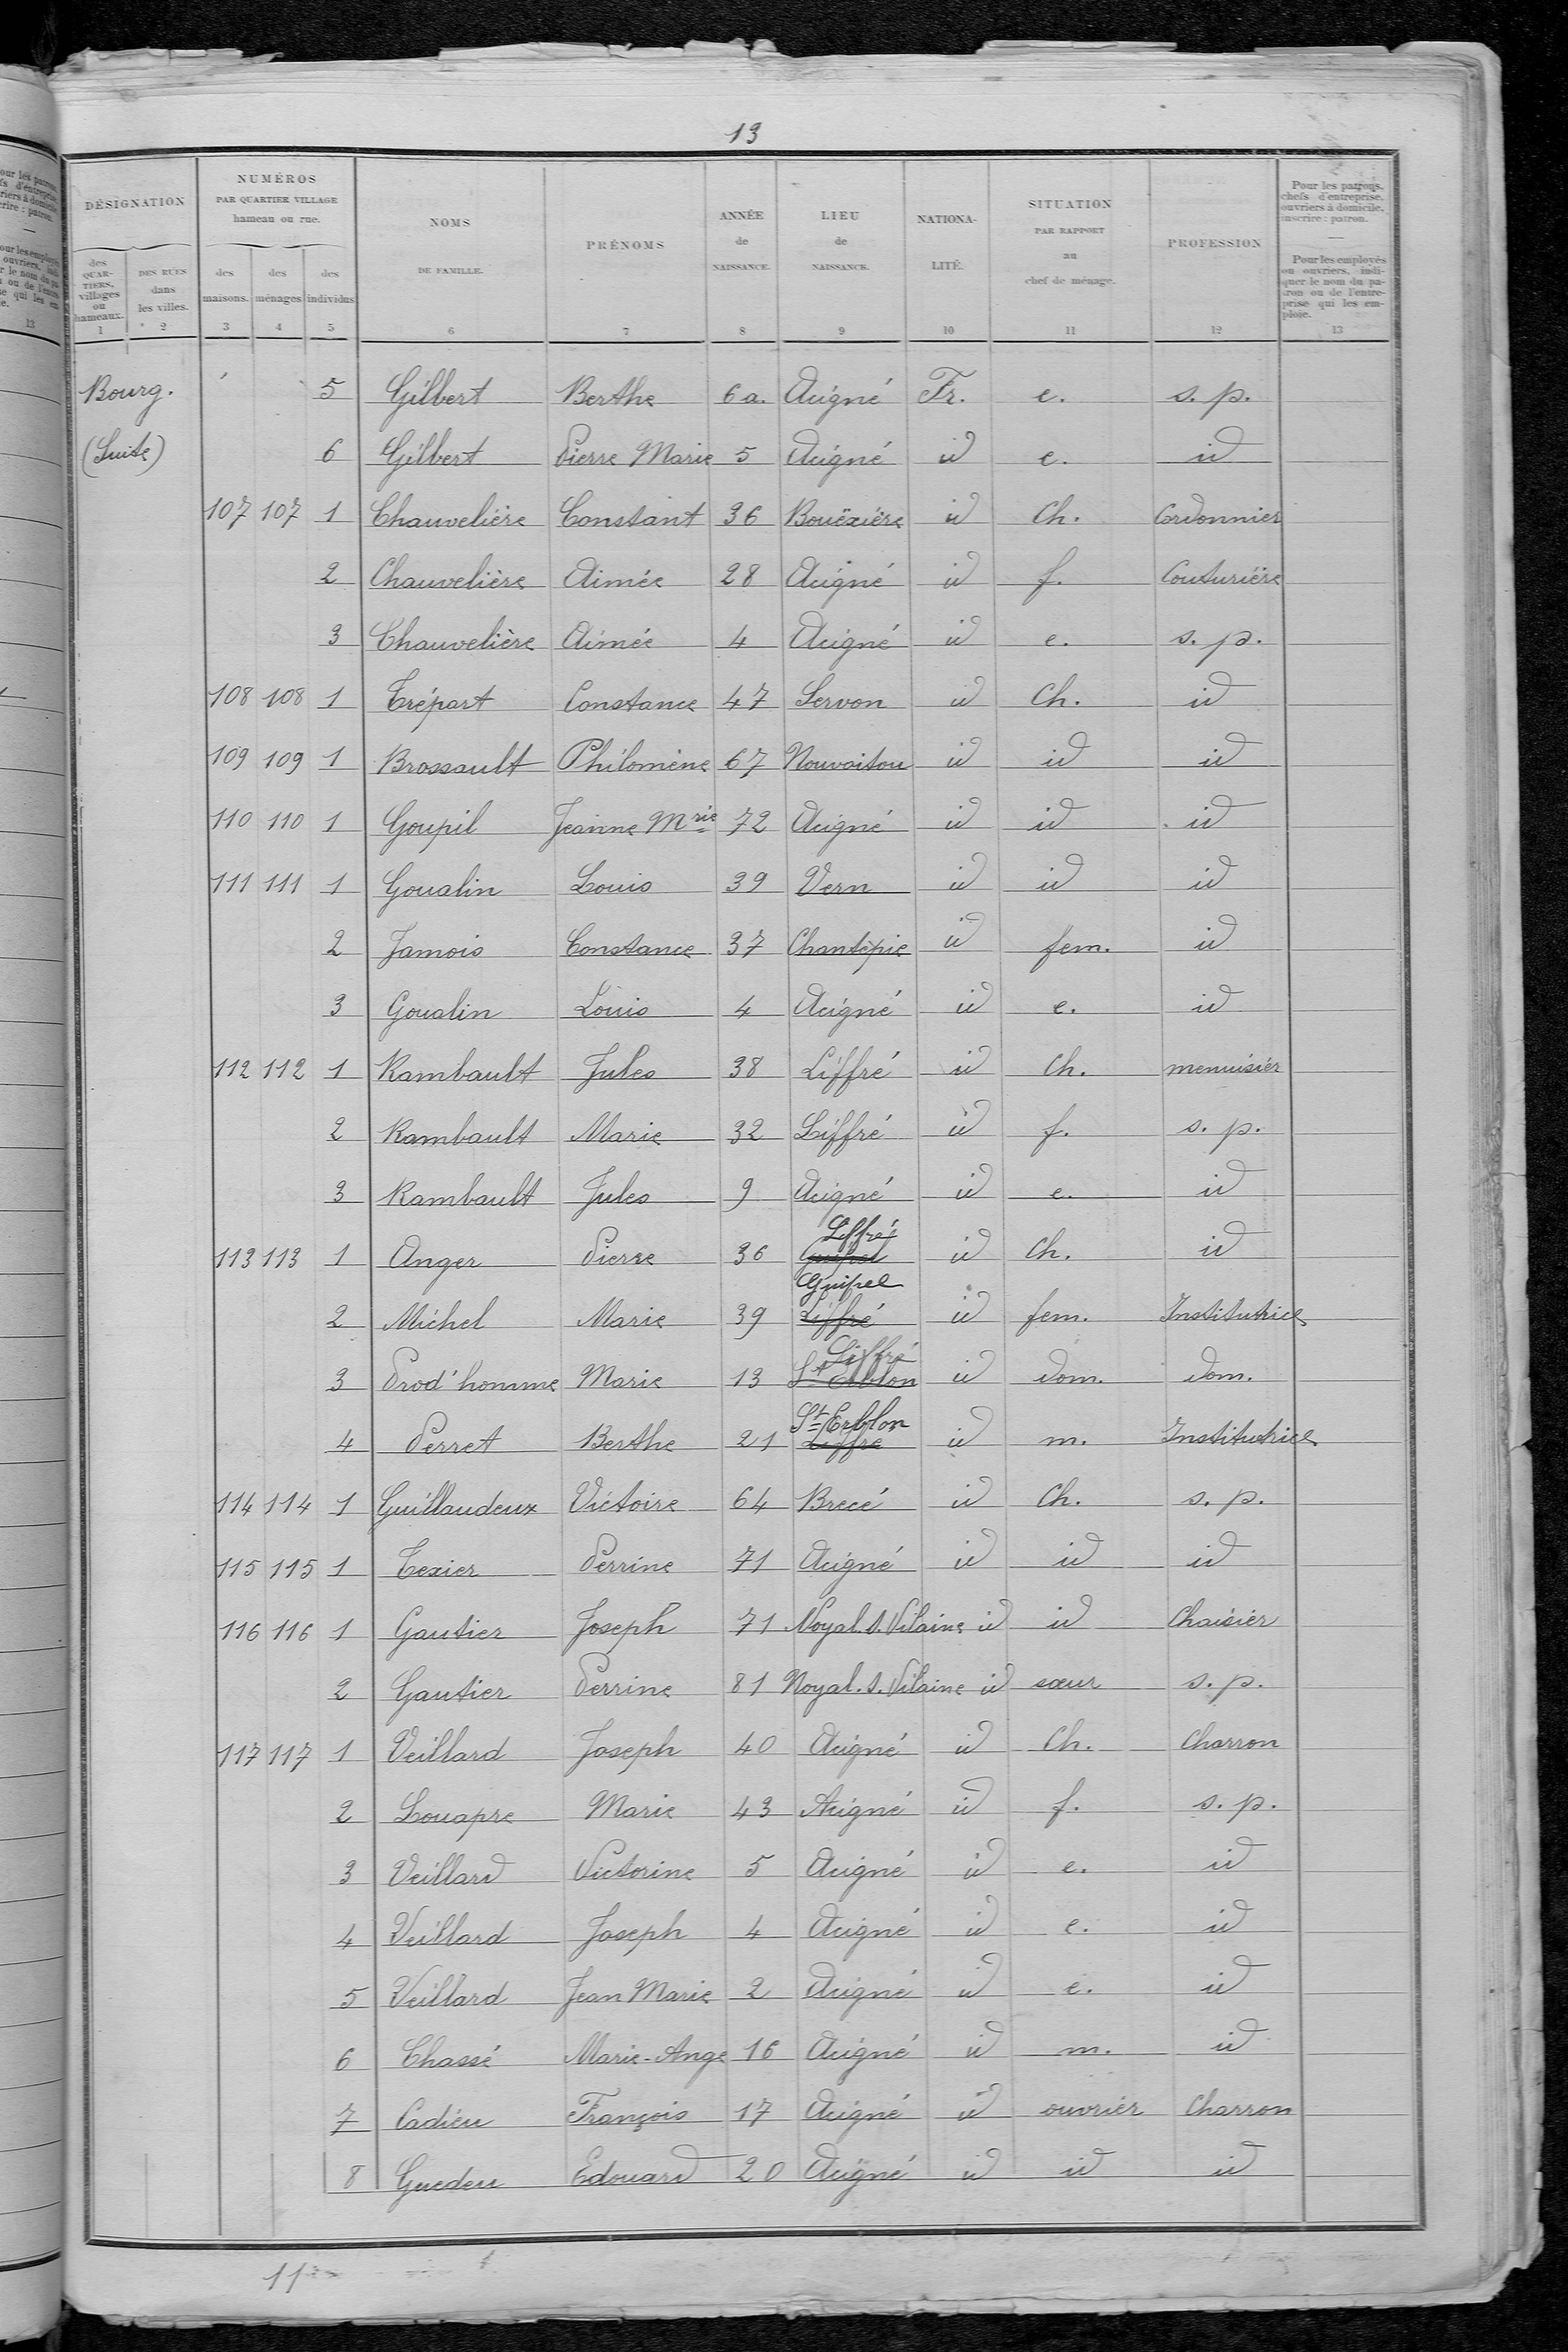 13
DÉSIGNATION
des QUARTIERS, villages ou hameaux. 1
DES RUES dans les villes. 2
NUMÉROS PAR QUARTIER VILLAGE hameau ou rue.
des maisons. 3
des ménages 4
des individus 5
NOMS DE FAMILLE. 6
PRÉNOMS 7
ANNÉE de NAISSANCE. 8
LIEU de NAISSANCE. 9
NATIONALITÉ. 10
SITUATION PAR RAPPORT au chef de ménage. 11
PROFESSION 12
Pour les patrons, chefs d'entreprise, ouvriers à domicile, inscrire : patron. — Pour les employés ou ouvriers, indiquer le nom du patron ou de l'entreprise qui les emploie. 13
Bourg. 5 Gilbert Berthe 6 a. Acigné Fr. e. s. p.
(Suite) 6 Gilbert Pierre Marie 5 Acigné id e. id
107 107 1 Chauvelière Constant 36 Bouëxière id Ch. Cordonnier
2 Chauvelière Aimée 28 Acigné id f. Couturière
3 Chauvelière Aimée 4 Acigné id e. s. p.
108 108 1 Trépart Constance 47 Servon id Ch. id
109 109 1 Brossault Philomène 67 Nouvoitou id id id
110 110 1 Goupil Jeanne Mrie 72 Acigné id id id
111 111 1 Goualin Louis 39 Vern id id id
2 Jamois Constance 37 Chantepie id fem. id
3 Goualin Louis 4 Acigné id e. id
112 112 1 Rambault Jules 38 Liffré id Ch. menuisier
2 Rambault Marie 32 Liffré id f. s. p.
3 Rambault Jules 9 Acigné id e. id
113 113 1 Anger Pierre 36 Guipel Liffré id Ch. id
2 Michel Marie 39 Liffré Guipel id fem. Institutrice
3 Prod'homme Marie 13 St Erblon Liffré id dom. dom.
4 Perret Berthe 21 Liffré St Erblon id m. Institutrice
114 114 1 Guillaudeux Victoire 64 Brecé id Ch. s. p.
115 115 1 Texier Perrine 71 Acigné id id id
116 116 1 Gautier Joseph 71 Noyal. s. Vilaine id id Chaisier
2 Gautier Perrine 81 Noyal. s. Vilaine id sœur s. p.
117 117 1 Veillard Joseph 40 Acigné id Ch. Charron
2 Louapre Marie 43 Acigné id f. s. p.
3 Veillard Victorine 5 Acigné id e. id
4 Veillard Joseph 4 Acigné id e. id
5 Veillard Jean Marie 2 Acigné id e. id
6 Chassé Marie-Ange 16 Acigné id m. id
7 Cadieu François 17 Acigné id ouvrier Charron
8 Guedeu Edouard 20 Acigné id id id